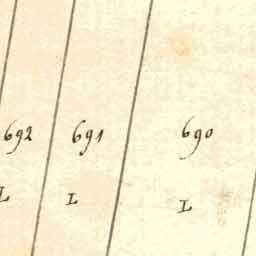 692 691 690
L L L